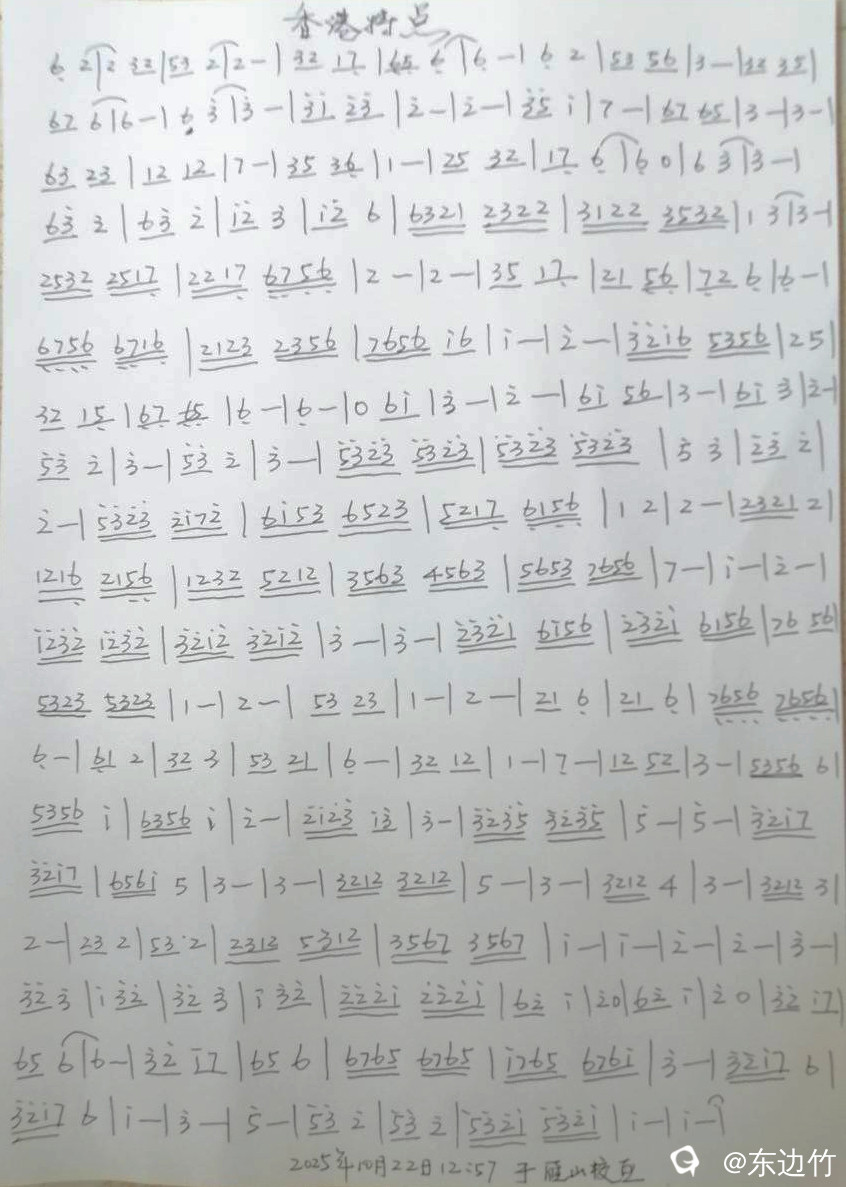 香港特点
6̣ 2|2 32|53 2|2 -| 32 17̣ |6̣5̣ 6̣|6̣ -| 6̣ 2 |53 56 |3 -|33 35|
67 6|6 -| 6 3̇|3̇ -|3̇1̇ 2̇3̇ |2̇ -|2̇ -|3̇5̇ 1̇ |7 -|67 65|3 -|3 -|
63 23 |12 12 |7 -|35 36 |1 -|25 32|17̣ 6̣|6̣ 0|6 3|3 -|
63̇ 2̇ |63̇ 2̇ |1̇2̇ 3̇ |1̇2̇ 6 |6321 2322 |3122 3532|1 3|3 -|
2532 2517̣ |2217̣ 6̣7̣5̣6̣ |2 -|2 -|35 17̣ |21 5̣6̣ |7̣2 6̣ |6̣ -|
6̣7̣5̣6̣ 6̣7̣16̣ |2123 2356 |7656 1̇6 |1̇ -|2̇ -|3̇2̇1̇6 5356|25|
32 15̣ |6̣7̣ 6̣5̣ |6̣ -|6̣ -|0 61̇ |3̇ -|2̇ -|61̇ 56 |3 -|61̇ 3̇|2̇ -|
5̇3̇ 2̇ |3̇ -|5̇3̇ 2̇ |3̇ -|5̇3̇2̇3̇ 5̇3̇2̇3̇|5̇3̇2̇3̇ 5̇3̇2̇3̇ |5̇ 3̇ |2̇3̇ 2̇|
2̇ -|5̇3̇2̇3̇ 2̇1̇72̇ |61̇53 6523 |5217̣ 6̣15̣6̣ |1 2|2 -|2321 2|
1216̣ 215̣6̣ |1232 5212 |3563 4563 |5653 7656 |7 -|1̇ -|2̇ -|
1̇2̇3̇2̇ 1̇2̇3̇2̇ |3̇2̇1̇2̇ 3̇2̇1̇2̇ |3̇ -|3̇ -|2̇3̇2̇1̇ 61̇56 |2̇3̇2̇1̇ 6156|76 56|
5323 5323 |1 -|2 -| 53 23 |1 -|2 -|21 6̣ |21 6̣ |7̣6̣5̣6̣ 7̣6̣5̣6̣|
6̣ -|6̣1 2 |32 3 |53 21 |6̣ -|32 12 |1 -|7 -|12 52 |3 -|5356 6|
5356 1̇ |6356 1̇ |2̇ -|2̇1̇2̇3̇ 1̇3̇ |3̇ -|3̇2̇3̇5̇ 3̇2̇3̇5̇ |5̇ -|5̇ -|3̇2̇1̇7
3̇2̇1̇7 |6561̇ 5 |3 -|3 -|3212 3212|5 -|3 -|3212 4|3 -|3212 3|
2 -|23 2|53 2|2312 5312 |3567 3567 |1̇ -|1̇ -|2̇ -|2̇ -|3̇ -|
3̇2̇ 3̇ |1̇ 3̇2̇ |3̇2̇ 3̇ |1̇ 3̇2̇ |2̇2̇2̇1̇ 2̇2̇2̇1̇ |62̇ 1̇ |2̇0|62̇ 1̇ |2̇ 0 |3̇2̇ 1̇7|
65 6|6 -|3̇2̇ 1̇7 |65 6 |6765 6765 |1̇765 6761̇ |3̇ -|3̇2̇1̇7 6|
3̇2̇1̇7 6 |1̇ -|3̇ -|5̇ -|5̇3̇ 2̇ |5̇3̇ 2̇ |5̇3̇2̇1̇ 5̇3̇2̇1̇ |1̇ -|1̇ -|
2025年10月22日12:57 于雁山校区
@东边竹